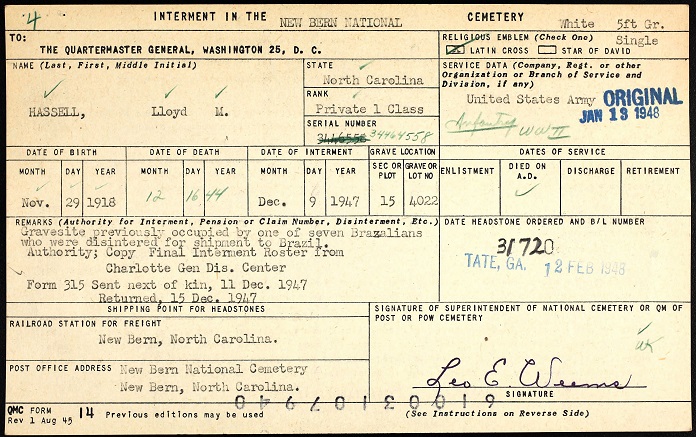 4 INTERMENT IN THE NEW BERN NATIONAL CEMETERY White 5ft Gr.
TO:
THE QUARTERMASTER GENERAL, WASHINGTON 25, D. C.
RELIGIOUS EMBLEM (Check One) Single
LATIN CROSS STAR OF DAVID
NAME (Last, First, Middle Initial)
HASSELL, Lloyd M.
STATE
North Carolina
RANK
Private 1 Class
SERIAL NUMBER
3446558 34464558
SERVICE DATA (Company, Regt. or other
Organization or Branch of Service and
Division, if any)
United States Army
ORIGINAL
JAN 13 1948
Infantry WW II
DATE OF BIRTH DATE OF DEATH DATE OF INTERMENT GRAVE LOCATION DATES OF SERVICE
MONTH DAY YEAR MONTH DAY YEAR MONTH DAY YEAR SEC OR PLOT GRAVE OR LOT NO ENLISTMENT DIED ON A.D. DISCHARGE RETIREMENT
Nov. 29 1918 12 16 44 Dec. 9 1947 15 4022
REMARKS (Authority for Interment, Pension or Claim Number, Disinterment, Etc.)
Gravesite previously occupied by one of seven Brazalians
who were disintered for shipment to Brazil.
Authority; Copy Final Interment Roster from
Charlotte Gen Dis. Center
Form 315 Sent next of kin, 11 Dec. 1947
Returned, 15 Dec. 1947
DATE HEADSTONE ORDERED AND B/L NUMBER
31720
TATE, GA. 12 FEB 1948
SHIPPING POINT FOR HEADSTONES
RAILROAD STATION FOR FREIGHT
New Bern, North Carolina.
POST OFFICE ADDRESS New Bern National Cemetery
New Bern, North Carolina.
SIGNATURE OF SUPERINTENDENT OF NATIONAL CEMETERY OR QM OF
POST OR POW CEMETERY
Leo E. Weems
SIGNATURE
QMC FORM 14 Previous editions may be used
Rev 1 Aug 45
(See Instructions on Reverse Side)